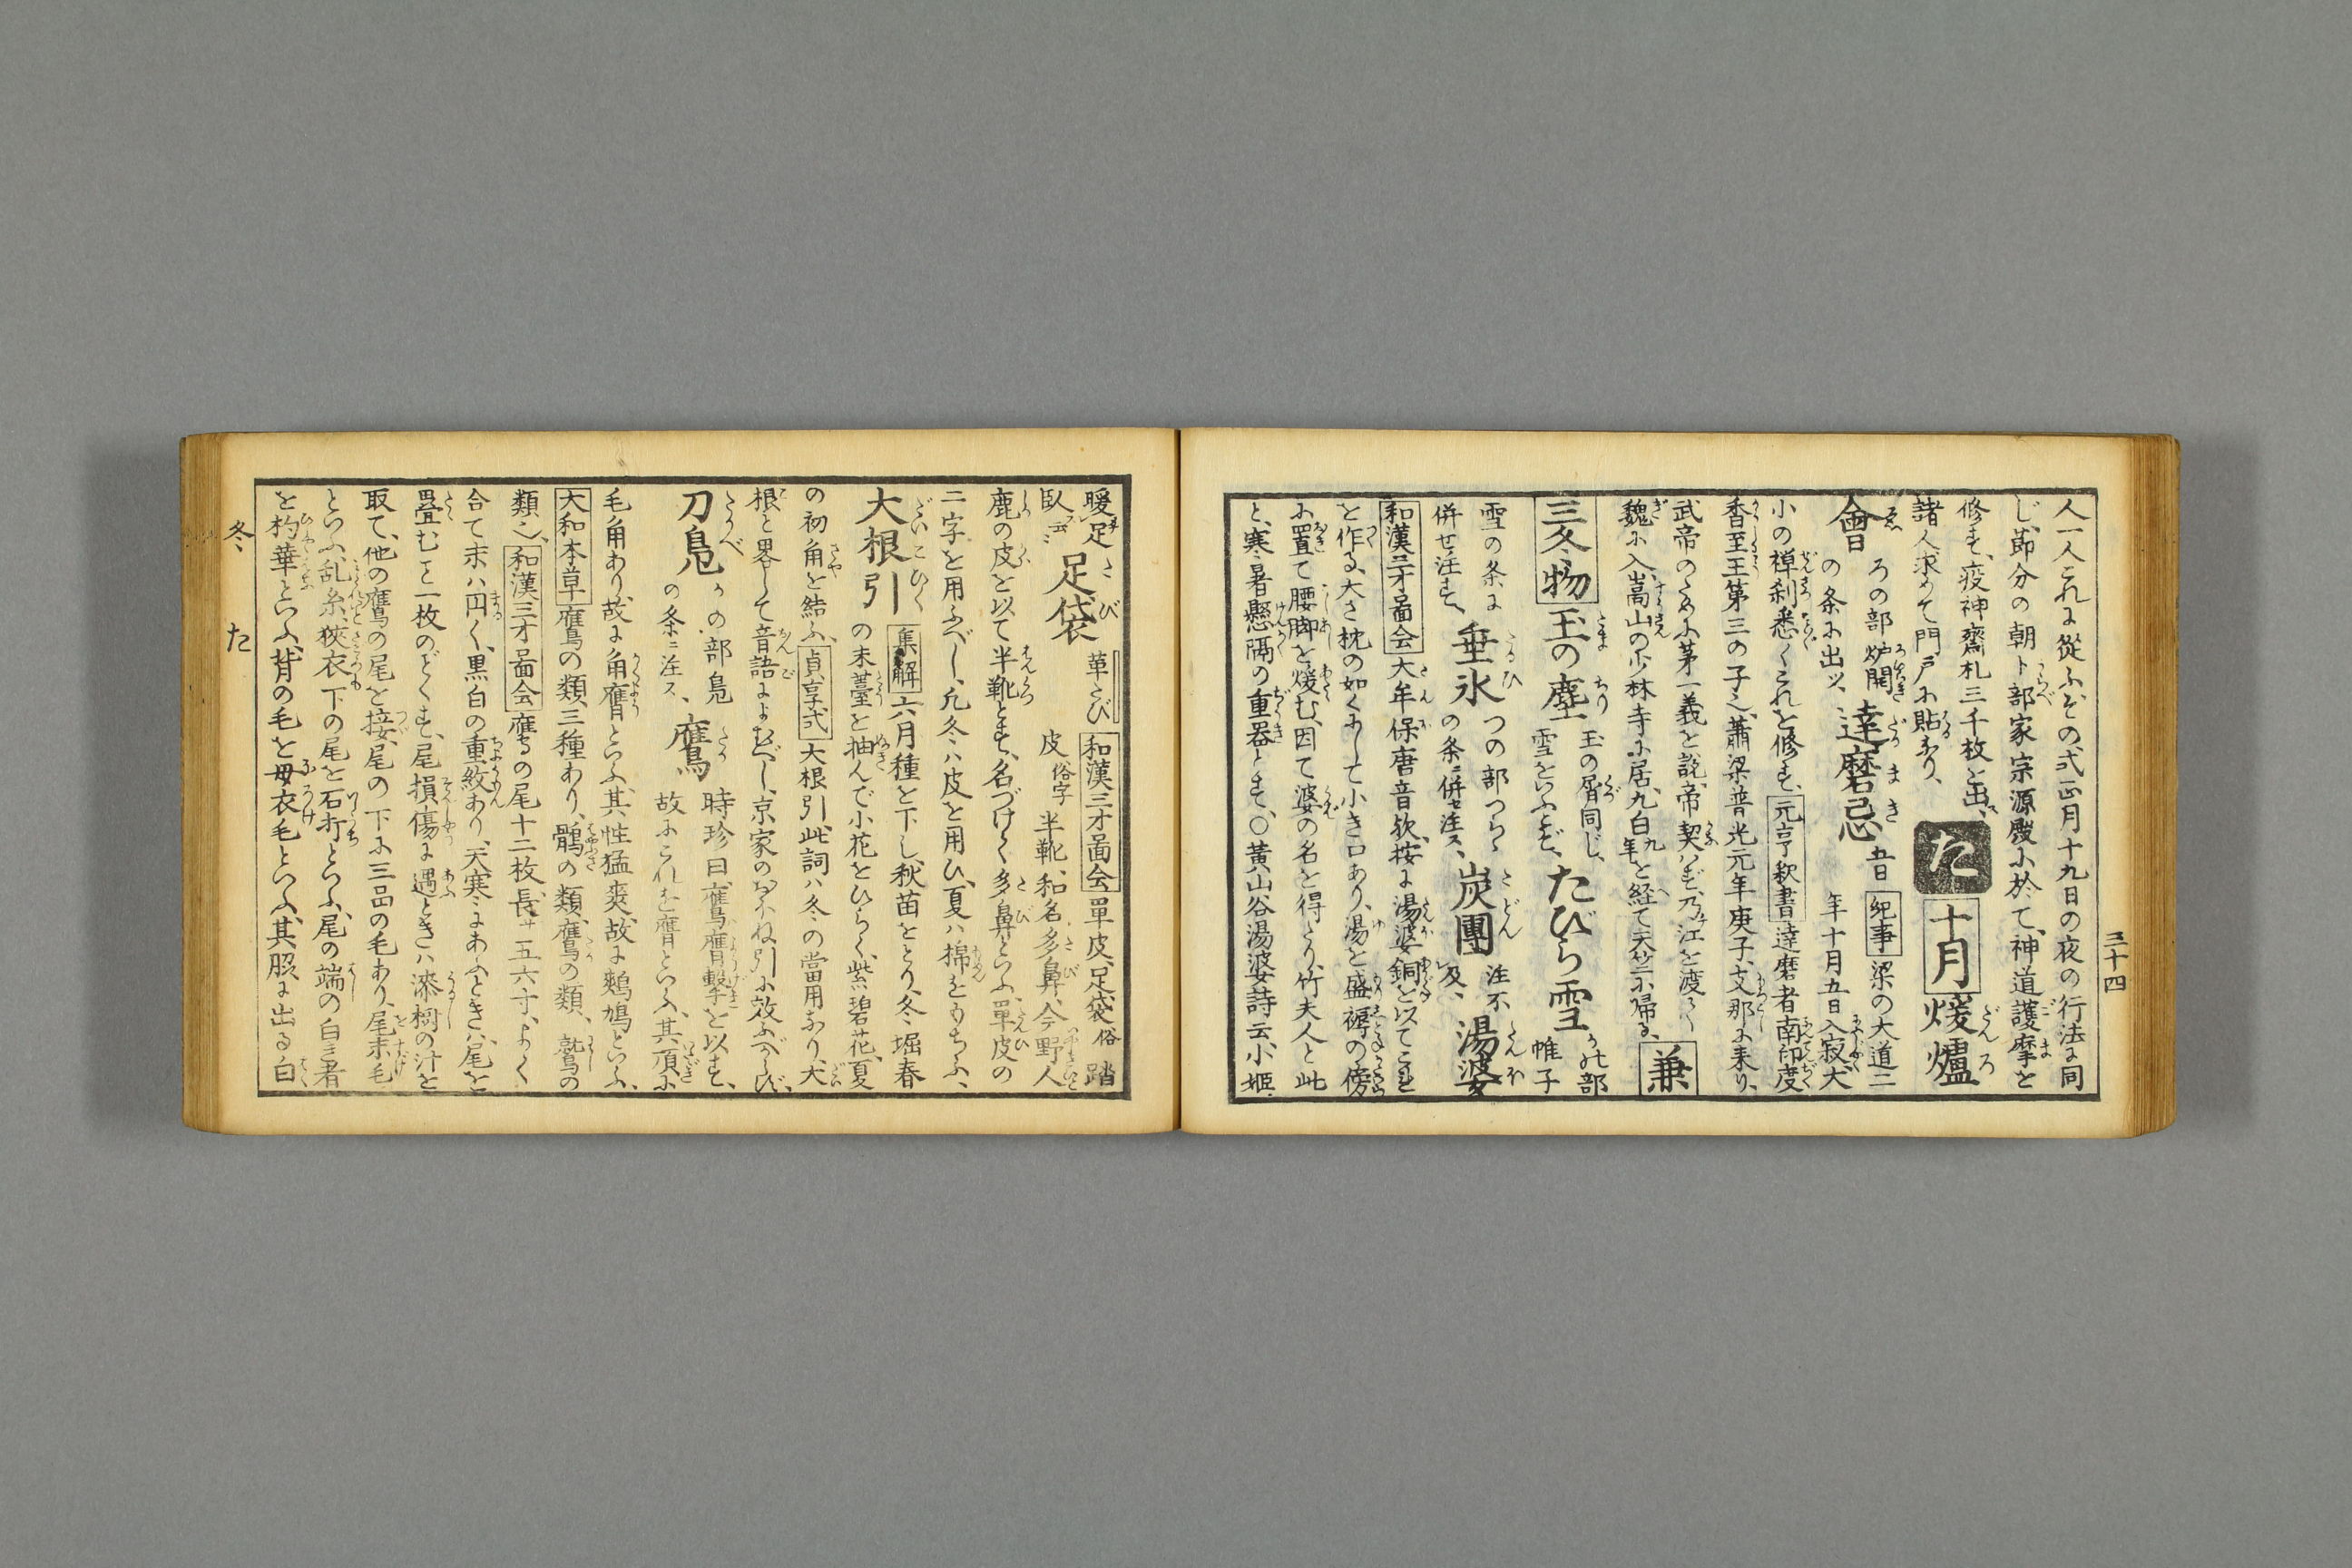 三十四
人一人これに従ふ、その式正月十九日の夜の行法に同
じ、節分の朝卜部家宗源殿に於て、神道護摩を
修す、疫神齋札三千枚を出ス、
諸人求めて門戸に貼るなり、
た
十月
煖爐
會
ろの部炉開
の条に出ツ、
達磨忌
五日
紀事
梁の大道二
年十月五日入寂大
小の禅刹悉くこれを修す、元亨釈書達磨者南印度
香至王第三の子也、蕭梁普光元年庚子、支那に来り、
武帝のために第一義を説、帝契ハず、乃チ江を渡り
魏に入、嵩山の少林寺に居、九白九年を経て天竺に帰る、
兼
三冬物
玉の塵
玉の屑同じ、
雪をいふ也、
たびら雪
かの部
帷子
雪の条に
併せ注す、
垂氷
つの部つらゝ
の条ニ併せ注ス、
炭團
注不
及、
湯婆
和漢三才圖会
太年保唐音欤、按に湯婆銅を以てこれ
を作る、大さ枕の如くにして小き口あり、湯を盛褥の傍
に置て腰脚を煖む、因て婆の名を得たり、竹夫人と此
と、寒暑懸隔の重器とす、〇黄山谷湯婆詩云、小姫
暖足
臥云云
足袋
革たび
和漢三才圖会
單皮、足袋俗踏
皮俗字半靴、和名多鼻、今野人
鹿の皮を以て半靴とす、名づけて多鼻といふ、單皮の
二字を用ふべし、凡冬ハ皮を用ひ、夏ハ棉をもちふ、
大根引
集解
六月種を下し、秋苗をとり、冬堀春
の末薹を抽んで小花をひらく、紫碧花、夏
の初角を結ふ、貞享式大根引此詞ハ冬の當用なり、大
根を畧して音語によむべし、京家のおほね引に效ふべからず、
刀鳧
かの部鳧
の条ニ注ス、
鷹
時珍曰鷹鷹膺擊を以す、
故にこれを膺といふ、其頂に
毛角あり、故に角鷹といふ、其性猛爽、故に鷞鳩といふ、
大和本草鷹の類三種あり、鶻の類、鷹の類、鷲の
類也、和漢三才圖会鷹の尾十二枚、長サ五六寸、よく
合て末ハ円く、黒白の重紋あり、天寒にあふときハ、尾を
畳むこと一枚のごとくす、尾損傷に遇ときハ漆樹の汁を
取て、他の鷹の尾を接、尾の下に三品の毛あり、尾末毛
といふ、乱糸、狹衣下の尾を石打といふ、尾の端の白き者
を杓華といふ、背の毛を母衣毛といふ、其脇に出る白
冬
た